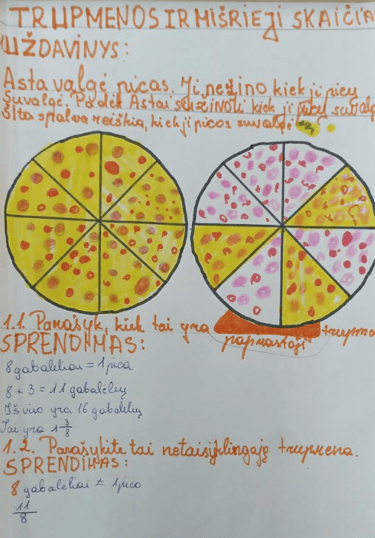 TRUPMENOS IR MIŠRIEJI SKAIČIA
UŽDAVINYS:
Asta valgė picas. Ji nežino kiek ji picų
suvalgė. Padėk Astai sužinoti kiek ji picų suvalgė
Šita spalva reiškia, kiek ji picos suvalgė
1.1. Parašyk, kiek tai yra paprastąja trupme
SPRENDIMAS:
8 gabalėliai = 1 pica
8 + 3 = 11 gabalėlių
Iš viso yra 16 gabalėlių
Tai yra 1 3/8
1.2. Parašykite tai netaisyklingąja trupmena.
SPRENDIMAS:
8 gabalėliai = 1 pica
11/8